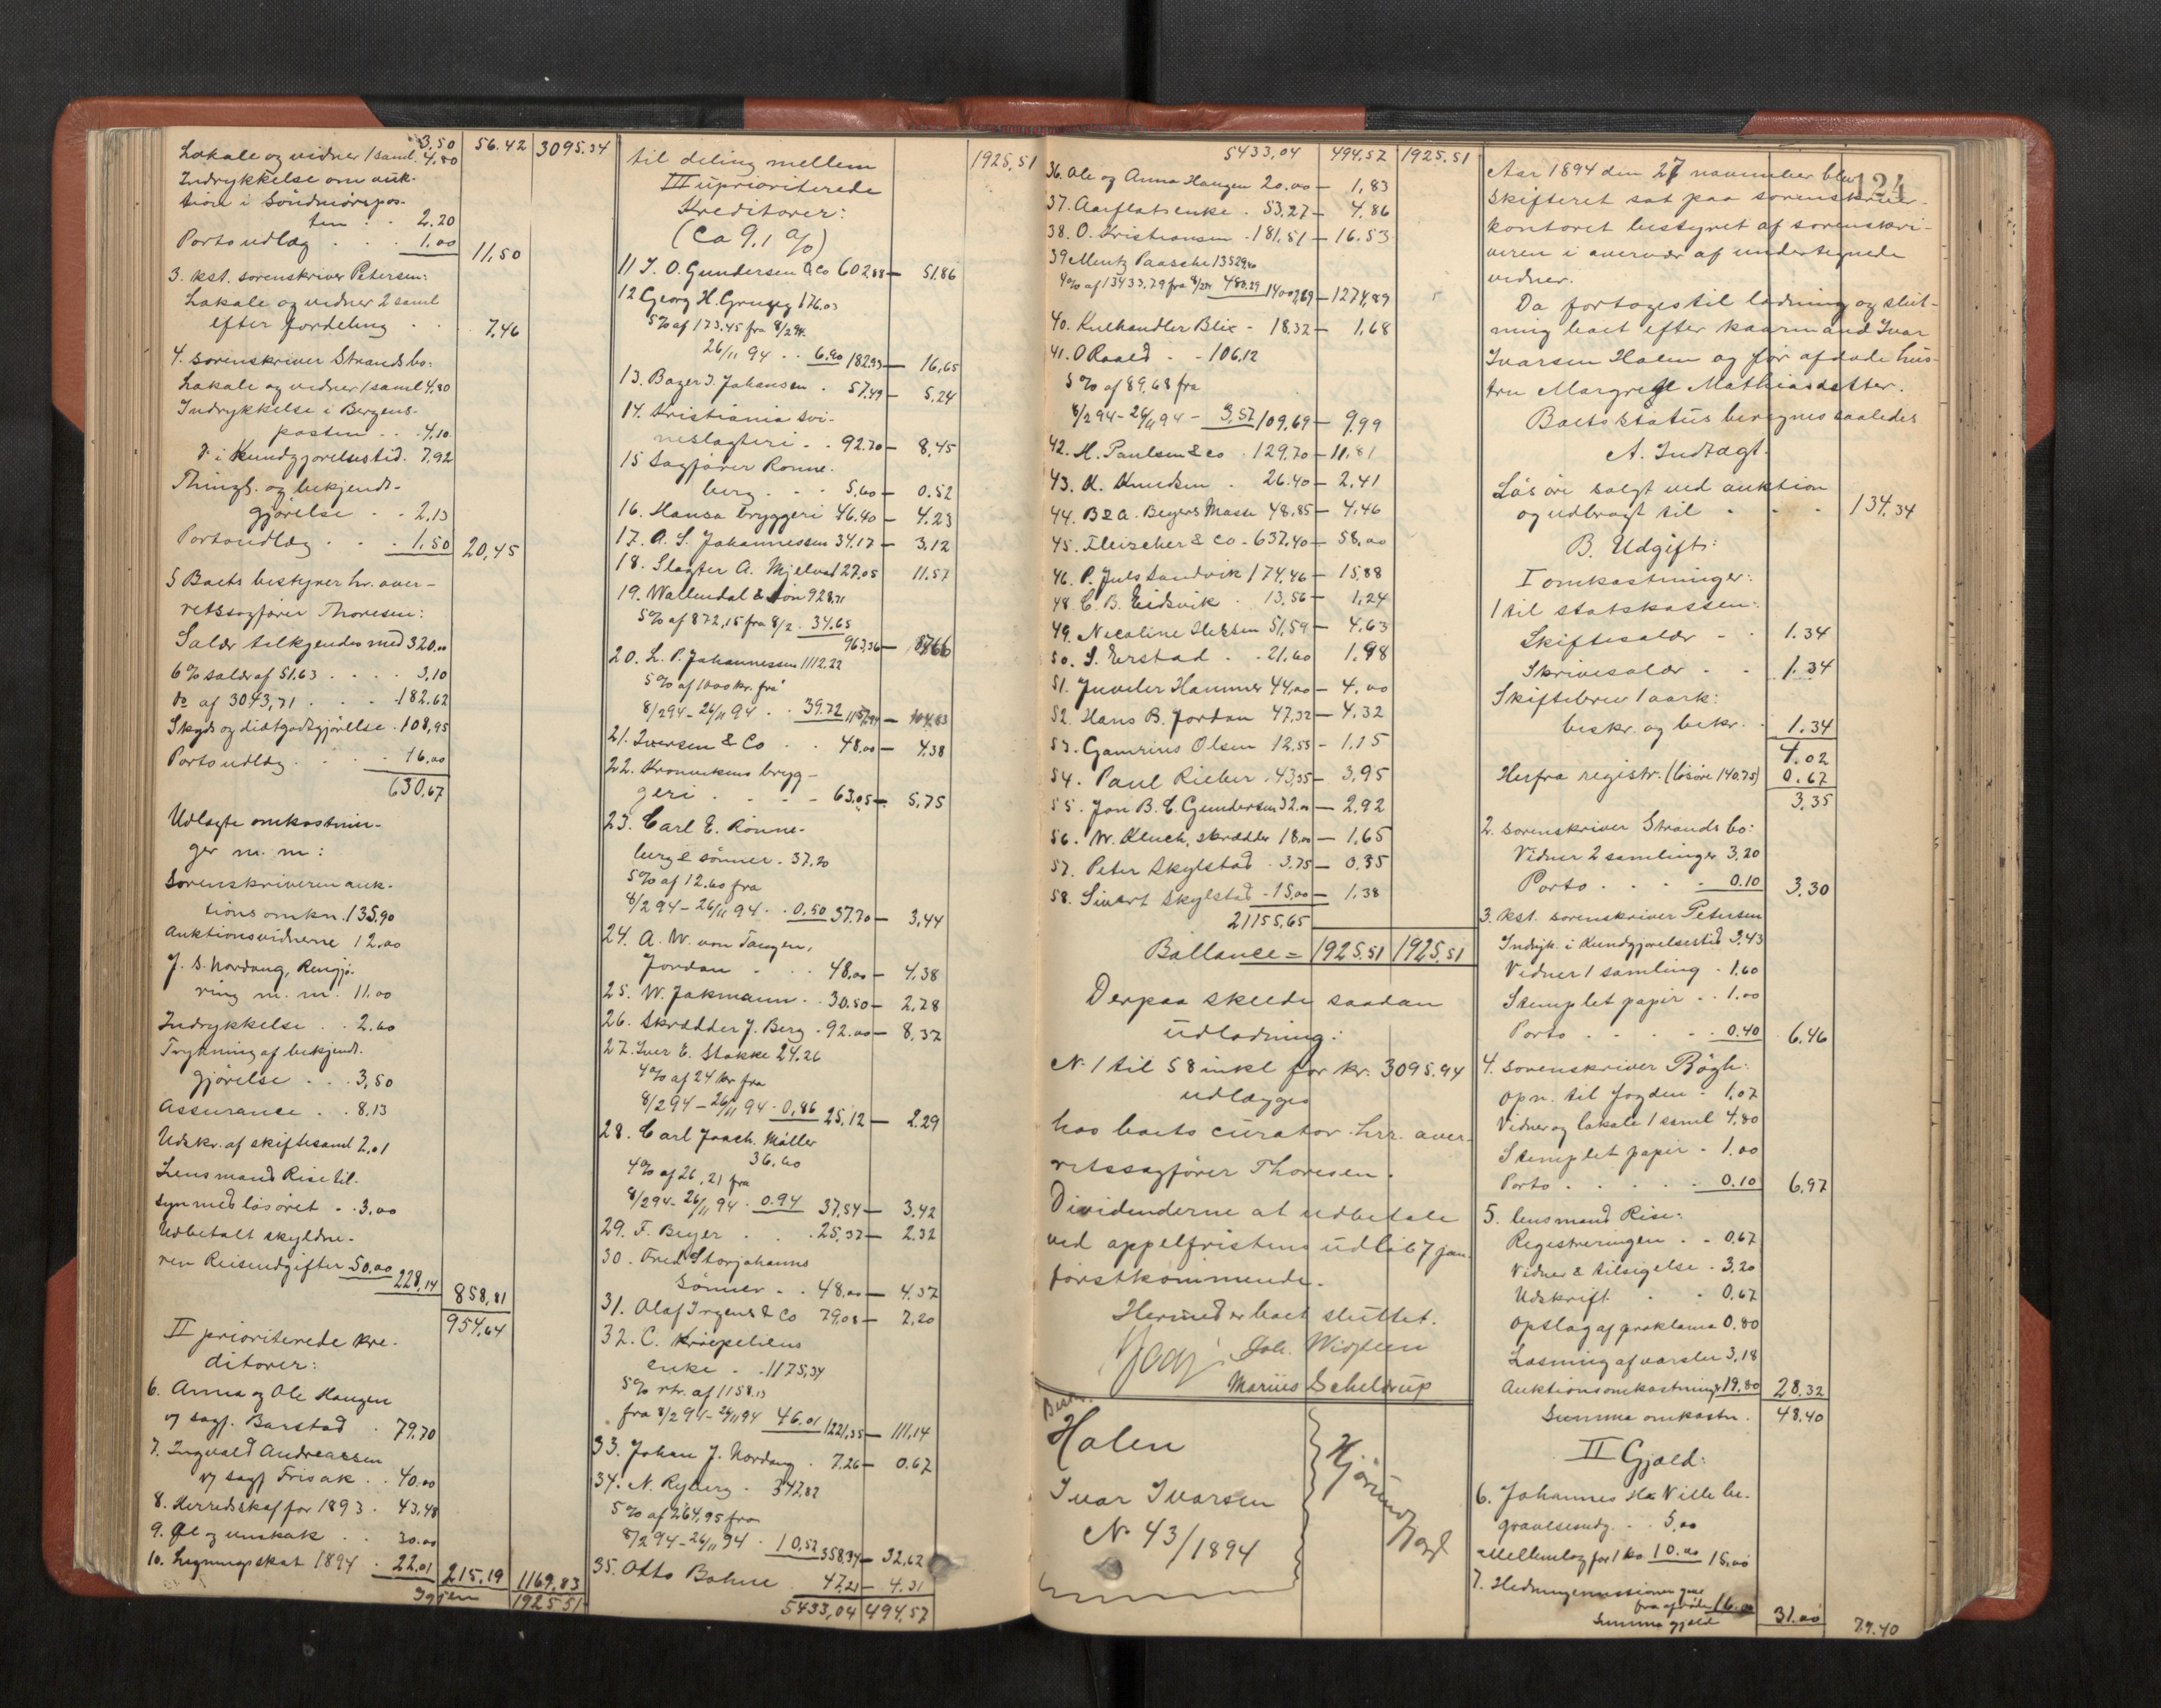 3,50 56.42 3095.34
Lokale og vidner 1 saml. 4,80
Indrykkelse om auk-
tion i Söndmörspos-
ten . . 2.20
Portoudlæg . . . 1,00 11,50
3. kst. sorenskriver Petersen:
Lokale og vidner 2 saml
efter fordeling . . 7,46
4. Sorenskriver Strands bo:
Lokale og vidner 1 saml 4,80
Indrykkelse i Bergens-
posten . . 4,10
do i Kundgjørelsestid. 7,92
Thingl. og bekjendt-
gjörelse . . 2,13
Portoudlæg . . . 1,50 20,45
5 Boets bestyrer hr. over-
retssagfører Thoresen:
Salær tilkjendes med 320.00
6% salær af 51,63 . . . . 3,10
do af 3043,71 . . . 182.62
Skyds og diætgodtgjørelse . 108,95
Portoudlæg . . . . 16.00
630,67
Udlagte omkostnin-
ger m. m:
Sorenskriveren auk-
tions omkn. 135,90
Auktionsvidnerne 12.00
J. S. Nordang, Rengjø-
ring m. m. 11.00
Indrykkelse . . 2.60
Trykning af bekjendt-
gjörelse . . . 3,50
Assurance . . 8.13
Udskr. af skiftesaml 2,01
Lensmand Rise til-
syn med løsøret . . 3,00
Udbetalt skyldne-
ren Reiseudgifter 50.00 228,14 858,81
954,64
II prioriterede kre-
ditorer:
6. Anna og Ole Haugen
v/ sagf. Barstad . 79.70
7. Ingvald Andreassen
v/ sagf Frisak . . 40.00
8. Herredskas for 1893 . 43,48
9. Øl og vinskat . . 30.00
10. Ligningsskat 1894 . 22.01 215,19 1169,83
Igjen 1925 51
til deling mellem 1925,51
III uprioriterede
kreditorer:
(Ca 9,1 %)
11 J. O. Gundersen & Co 602 88 — 51.86
12 Georg H. Gruzey 176.03
5% af 173.45 fra 8/2 94.
26/11 94 . . 6.90 182.93 — 16,65
13. Bager J. Johansen . 57,49 — 5,24
14. Kristiania svi-
neslagteri . . 92.70 — 8,45
15 Sagfører Ronne-
berg . . . 5,60 — 0.52
16. Hansa bryggeri 46.40 — 4.23
17. A. S. Johannessen 34.17 — 3,12
18. Slagter A. Mjelva 127.05 11.57
19. Wallendal & Søn 928,71
5% af 872,15 fra 8/2 . 34.65
963,36 — 8766
20. L. P. Johannessen 1112.22
5% af 1000 kr. fra
8/2 94 - 26/11 94 . . 39.72 — 104,83
21. Iversen & Co . . 48,00 — 4.38
22. Kronvikens bryg-
geri . . . . 63,05 — 5,75
23. Carl E. Rönne-
berg & sönner . 37.20
5% af 12.60 fra
8/2 94 - 26/11 94 . . 0,50 37.70 — 3,44
24. A. W. von Tangen,
Jordan . . . 48,00 — 4.38
25. W. Jakmann . . 30.50 — 2,78
26. Skrædder J. Berg . 92.00 — 8,37
27. Iver E. Stokke 24.26
4% af 24 kr fra
8/2 94 - 26/11 94 . 0,86 25,12 — 2.29
28. Carl Joach. Möller
36,60
4% af 26,21 fra
8/2 94 - 26/11 94 . 0.94 37,54 — 3,42
29. F. Beyer . . . 25,37 — 2.32
30. Fred Storjohanns
Sönner . . 48.00 — 4.37
31. Olaf Irgens & Co 79,08 — 7,20
32. C. Kroepeliens
enke . . 1175,34
5% rtr. af 1158.13
fra 8/2 94 - 26/11 94 46.01 1221,35 — 111,14
33. Johan J. Nordang . 7.26 — 0.67
34. N. Ryberg . 347.82
5% af 264,95 fra
8/2 94 - 26/11 94 . 10,52 358.34 — 32,62
35. Otto Bohne . 47.21 — 4.31
5433,04 494,57
5433,04 494,57 1925.51
36. Ole og Anna Haugen 20.00 — 1,83
37. Aarflots enke . 53,27 — 4,86
38. O. Kristiansen . 181,51 — 16.53
39 Mentz Paasche 13529,40
4% af 13433.79 fra 8/2 94 480.29 14009,69 — 1274,89
40. Kulhandler Blix - 18.32 — 1,68
41. O Raald . - 106,12
5% af 89,68 fra
8/2 94 - 26/11 94 - 3,57 109,69 — 9,99
42. H. Paulsen & co . 129,70 — 11,81
43. K. Knudsen . 26.40 — 2,41
44. B & A. Beyers Masse 48,85 — 4,46
45. Fleischer & Co . 637,40 — 58,00
46. P. Juls Sandvik 174,46 — 15,88
48. C. B. Eidsvik . 13,56 — 1,24
49. Nicoline Helsen 51,59 — 4,63
50. S. Erstad . . 21,60 1,98
51. Juveler Hammer 44,00 — 4,00
52. Hans B. Jordan 47,32 — 4,32
53. Gamrius Olsen 12,55 - 1,15
54. Paul Rieber . 43,35 — 3,95
55. Jon B. C. Gundersen 32.00 — 2,92
56. W. Kluch, skrædder 18,00 — 1,65
57. Peter Skylstad . 3,75 — 0,35
58. Sivert Skylstad . 15,00 — 1,38
21155,65
Ballance = 1925,51 1925,51
Derpaa skeede saadan
udlodning:
N. 1 til 58 inkl for kr. 3095.94
udlægges
hos boets curator hrr. over-
retssagfører Thoresen.
Dividenderne at udbetale
ved appelfristens udløb 7 jan.
förstkommende.
Hermed er boet sluttet.
Joh. Widsteen
Marius Scheldrup
Halen
Ivar Ivarsen
No 43/1894
Hjörundfjord
124
Aar 1894 den 27 november blev
skifteret sat paa sorenskriver-
kontoret bestyret af sorenskri-
veren i overvær af undertegnede
vidner.
Da foretoges til lodning og slut-
ning boet efter kaarmand Ivar
Ivarsen Halen og før afdøde hus-
tru Margrete Mathiasdatter.
Boets status beregnes saaledes
A. Indtægt.
Lösöre solgt ved auktion
og udbragt til . . . 134.34
B. Udgift:
I omkostninger:
1 til statskassen:
Skiftesalær - . 1.34
Skrivesalær . - 1.34
Skiftebrev 1 aark:
beskr. og bekr. . 1.34
4.02
Herfra registr. (lösöre 140.75) 0.67
3,35
2. Sorenskriver Strands bo:
Vidner 2 samlinger 3,20
Porto . . . . 0.10 3.30
3. kst. sorenskriver Petersen
Indryk. i Kundgjørelsestid 3,43
Vidner 1 samling . 1,60
Stemplet papir . . 1.00
Porto . . . . . 0.40 6,46
4. Sorenskriver Bögh:
Opn. til fogden . 1,07
Vidner og lokale 1 saml 4,80
Stemplet papir . 1,00
Porto . . . . . 0.10 6,97
5. lensmand Rise:
Registreringen . . 0.67
Vidner & tilsigelse . 3,20
Udskrift . . 0.67
Opslag af proklama 0,80
Læsning af varsler 3,18
Auktionsomkostninger 19,80 28,32
Summa omkostn. 48.40
II Gjæld:
6. Johannes Hs Ville be-
gravelsesudg. . . 5,00
Mellemlag for 1 ko 10.00 15,00
7. Hedningemissionen gave
fra afdøde 16.00 31.00
Summa gjæld 79.40